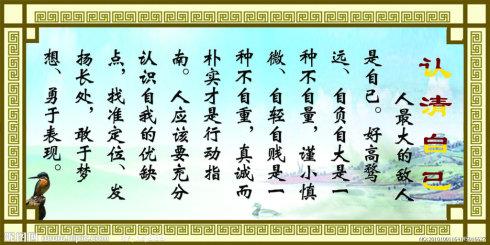 认清自己
人最大的敌人
是自己。好高骛
远、自负自大是一
种不自量，谨小慎
微、自轻自贱是一
种不自重，真诚而
朴实才是行动指
南。人应该要充分
认识自我的优缺
点，找准定位、发
扬长处，敢于梦
想、勇于表现。